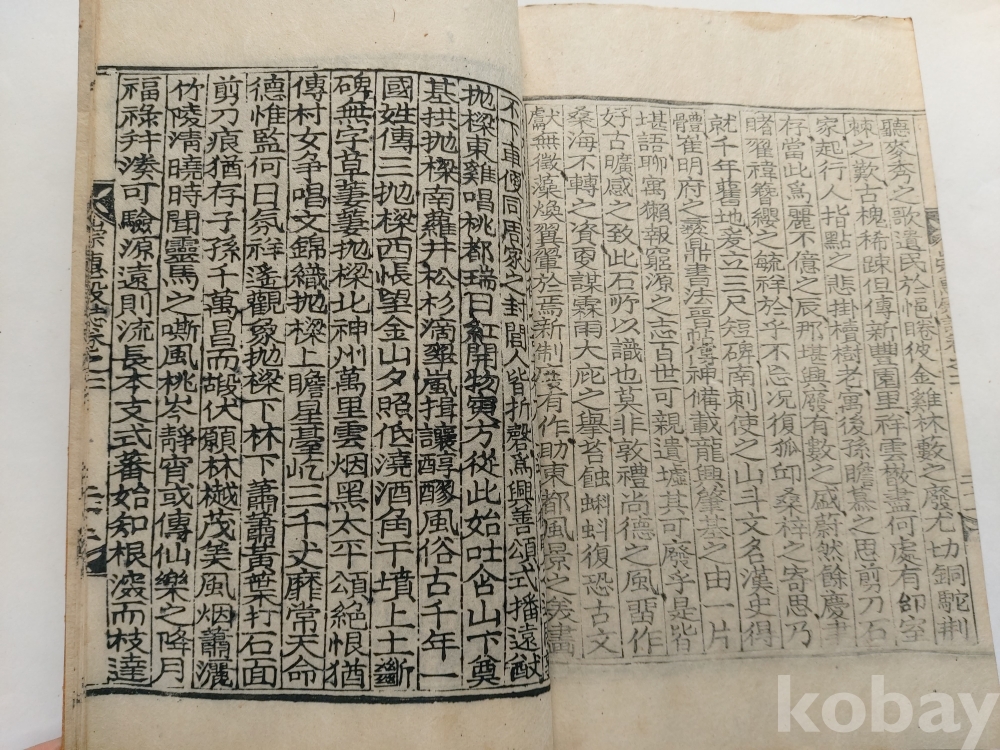 聽麥秀之歌遺民於悒眷彼金雞林藪之廢尤切銅駝荆
棘之歎古槐稀踈但傳新豊園里祥雲散盡何處有卲室
家起行人指點之悲掛櫝樹老寓後孫瞻慕之思剪刀石
存當此爲麗不億之辰那堪興廢有數之感蔚然餘慶
賭翟褘簪纓之毓祥於乎不忘況復狐丘桑梓之寄思乃
就千年舊地爰立三尺短碑南刺使之山斗文名漢史得
體崔明府之彝鼎書法晉帖傳神備載龍興肇基之由一片
堪語聊寓獺報竆源之志百世可親遺墟其可廢乎是皆
好古曠感之致此石所以識也莫非敦禮尚德之風啚作
桑海不轉之資爰謀霖雨大庇之擧昔蝕蝌蚪復恐古文
獻無徵渙煥翼翬於焉新制 有作助東都風景之美畵
不下 同周家之封閭人皆折磬爲興善頌式播遠猷
抛樑東雞唱桃都瑞日紅開物 方從此始吐含山下奠
基拱抛樑南蘿井松杉滴翠嵐揖讓醇醲風俗古千年一
國姓傳三抛樑西悵望金山夕照低澆酒角干墳上土斷
碑無字草萋萋抛樑北神州萬里雲烟黑太平頌絶恨猶
傳村女爭唱文錦織抛樑上瞻星臺屹三千丈靡常天命
德惟監何日氛祥遙觀象抛樑下林下蕭蕭黃葉打石面
剪刀痕猶存子孫千萬昌而嘏伏願林樾茂美風烟蕭灑
竹陵淸曉時聞靈馬之嘶風桃岑靜宵或傳仙樂之降月
福祿幷湊可驗源遠則流長本支式蕃始知根深而枝達
kobay